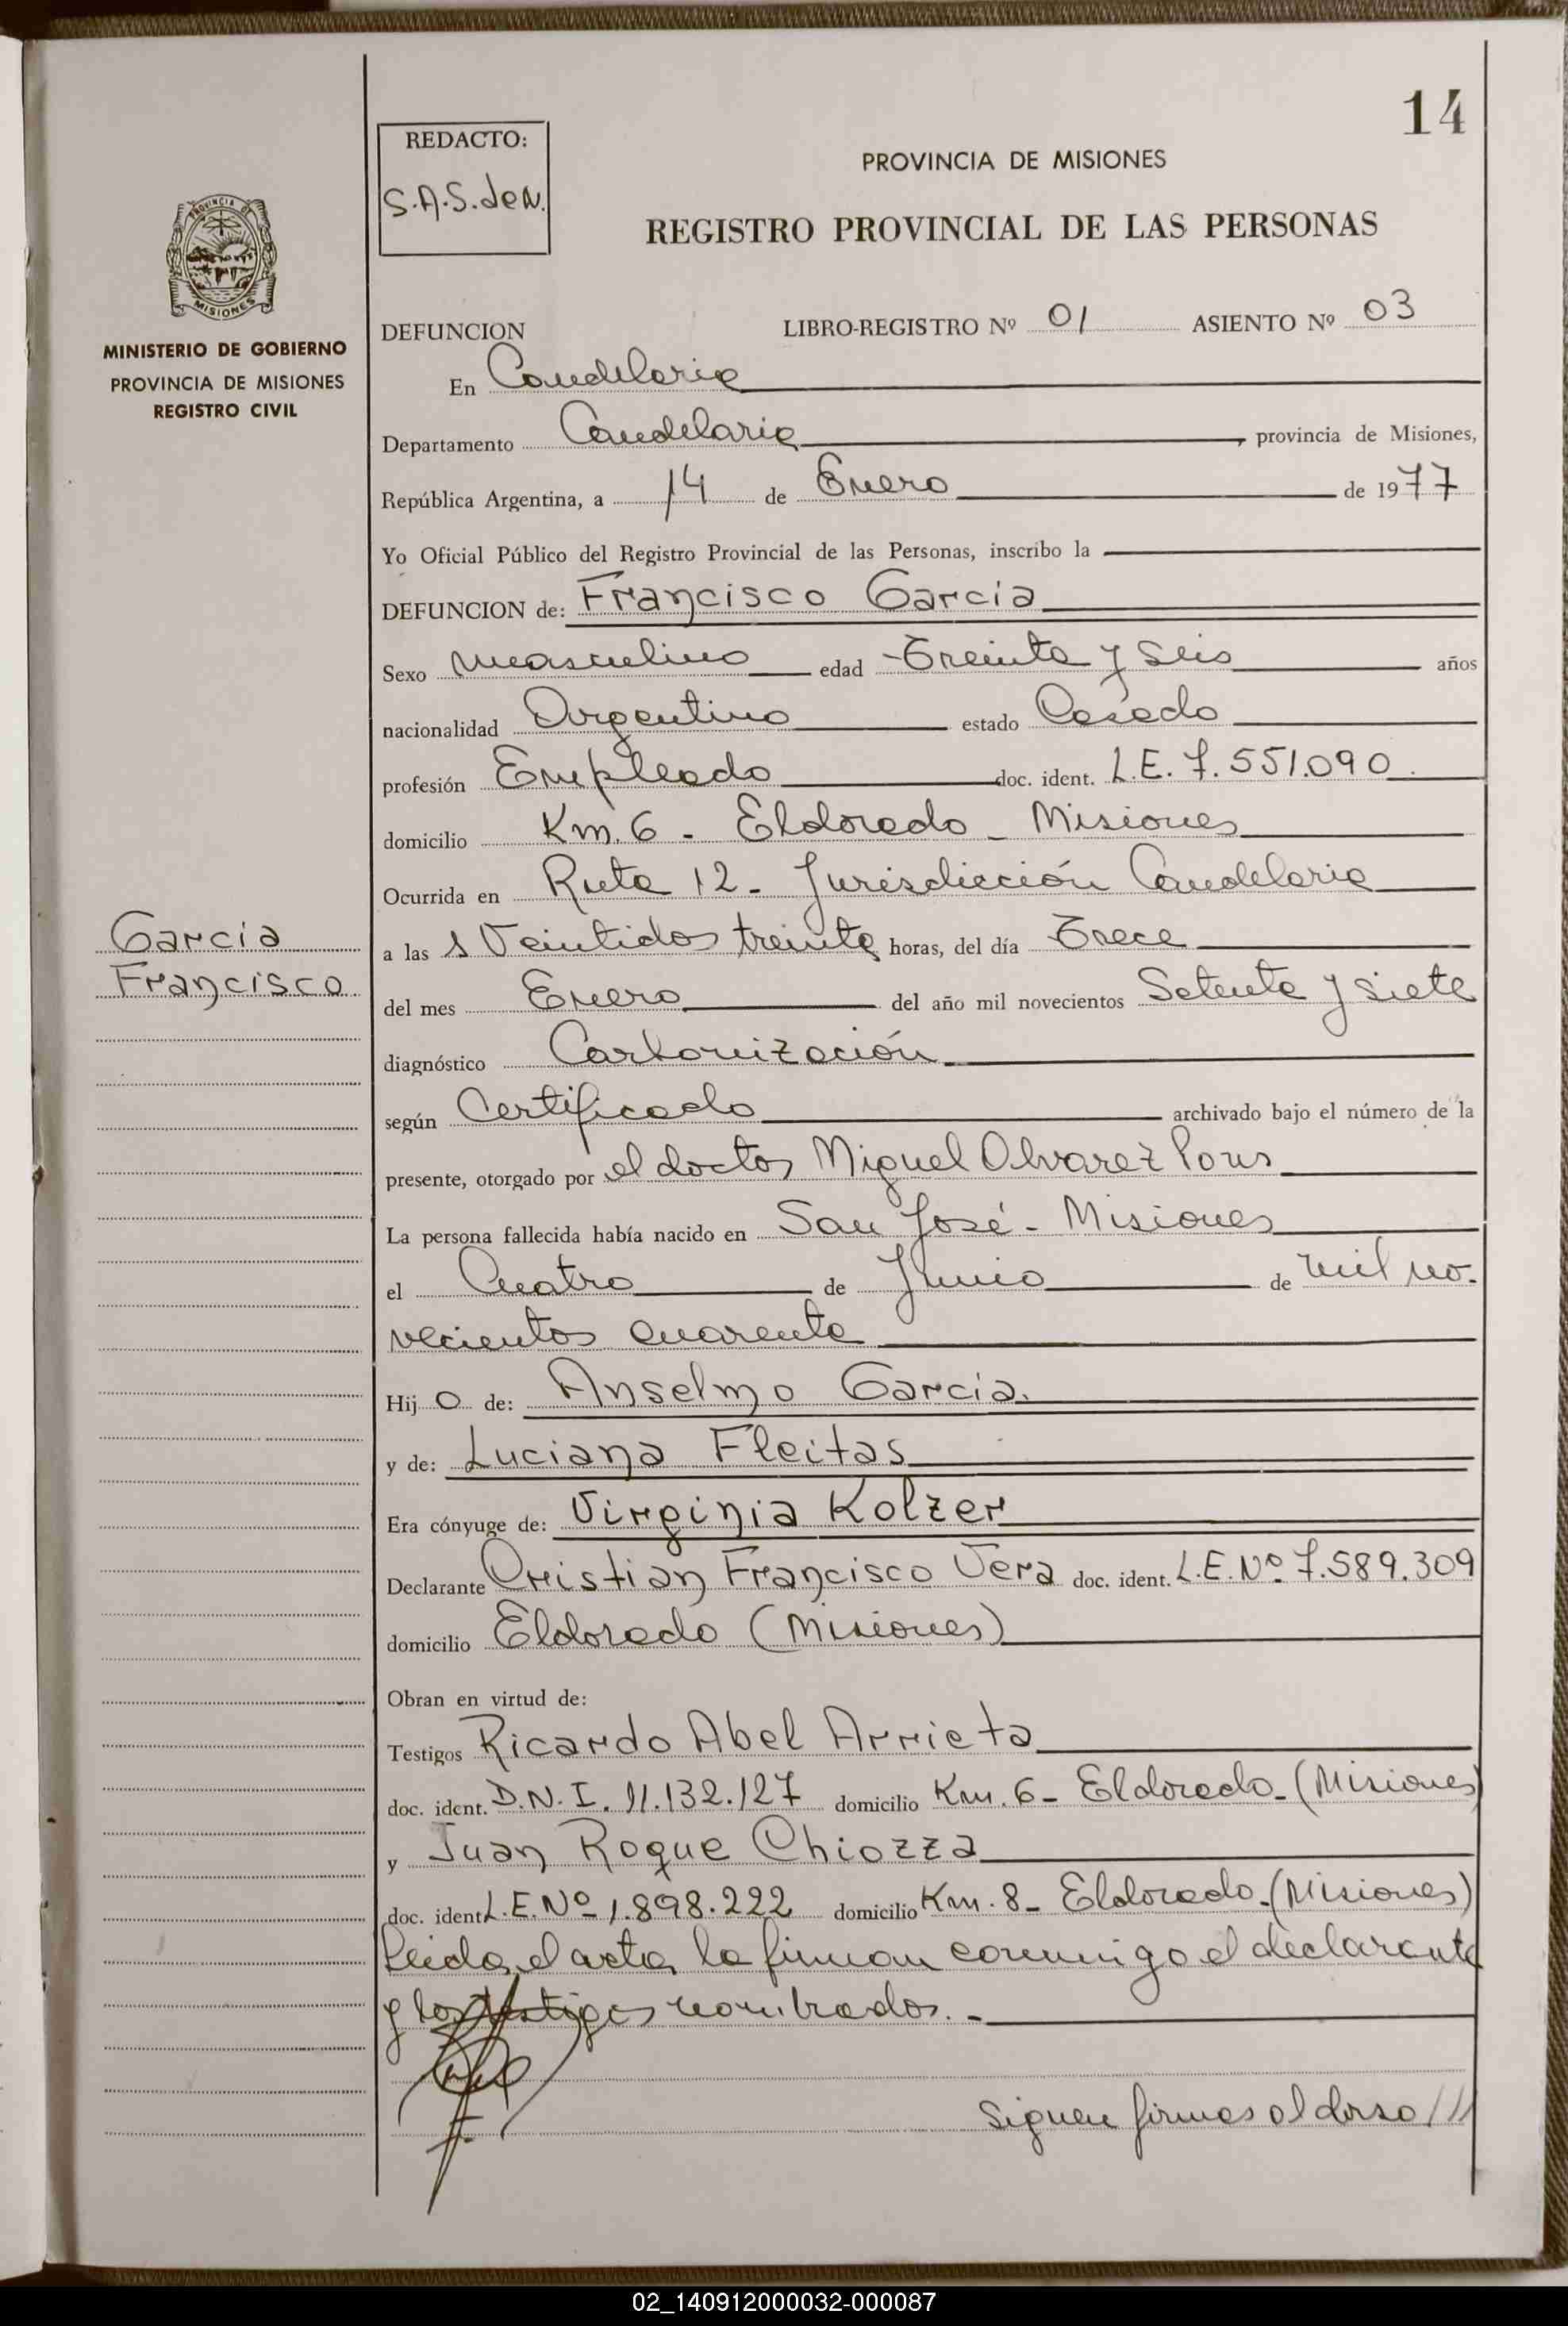 14
REDACTO:
S.A.S.deN.
PROVINCIA DE MISIONES
REGISTRO PROVINCIAL DE LAS PERSONAS
PROVINCIA DE
MISIONES
MINISTERIO DE GOBIERNO
PROVINCIA DE MISIONES
REGISTRO CIVIL
DEFUNCION LIBRO-REGISTRO Nº 01 ASIENTO Nº 03
En Candelaria
Departamento Candelaria, provincia de Misiones,
República Argentina, a 14 de Enero de 1977
Yo Oficial Público del Registro Provincial de las Personas, inscribo la
DEFUNCION de: Francisco Garcia
Sexo masculino edad Treinta y seis años
nacionalidad Argentino estado Casado
profesión Empleado doc. ident. L.E. 7.551.090.
domicilio Km. 6 - Eldorado - Misiones
Ocurrida en Ruta 12 - Jurisdicción Candelaria
Garcia
Francisco
a las s Veintidos treinta horas, del día Trece
del mes Enero del año mil novecientos Setenta y siete
diagnóstico Carbonización
según Certificado archivado bajo el número de la
presente, otorgado por el doctor Miguel Alvarez Pons
La persona fallecida había nacido en San José - Misiones
el Cuatro de Junio de mil no-
vecientos cuarenta
Hij o de: Anselmo Garcia.
y de: Luciana Fleitas
Era cónyuge de: Virginia Kolzer
Declarante Cristian Francisco Vera doc. ident. L.E. Nº 7.589.309
domicilio Eldorado (Misiones)
Obran en virtud de:
Testigos Ricardo Abel Arrieta
doc. ident. D.N.I. 11.132.127 domicilio Km. 6 - Eldorado - (Misiones)
y Juan Roque Chiozza
doc. ident L.E. Nº 1.898.222 domicilio Km. 8 - Eldorado - (Misiones)
Leida el acta, la firman conmigo el declarante
y los testigos nombrados. -
Siguen firmas al dorso ///
02_140912000032-000087